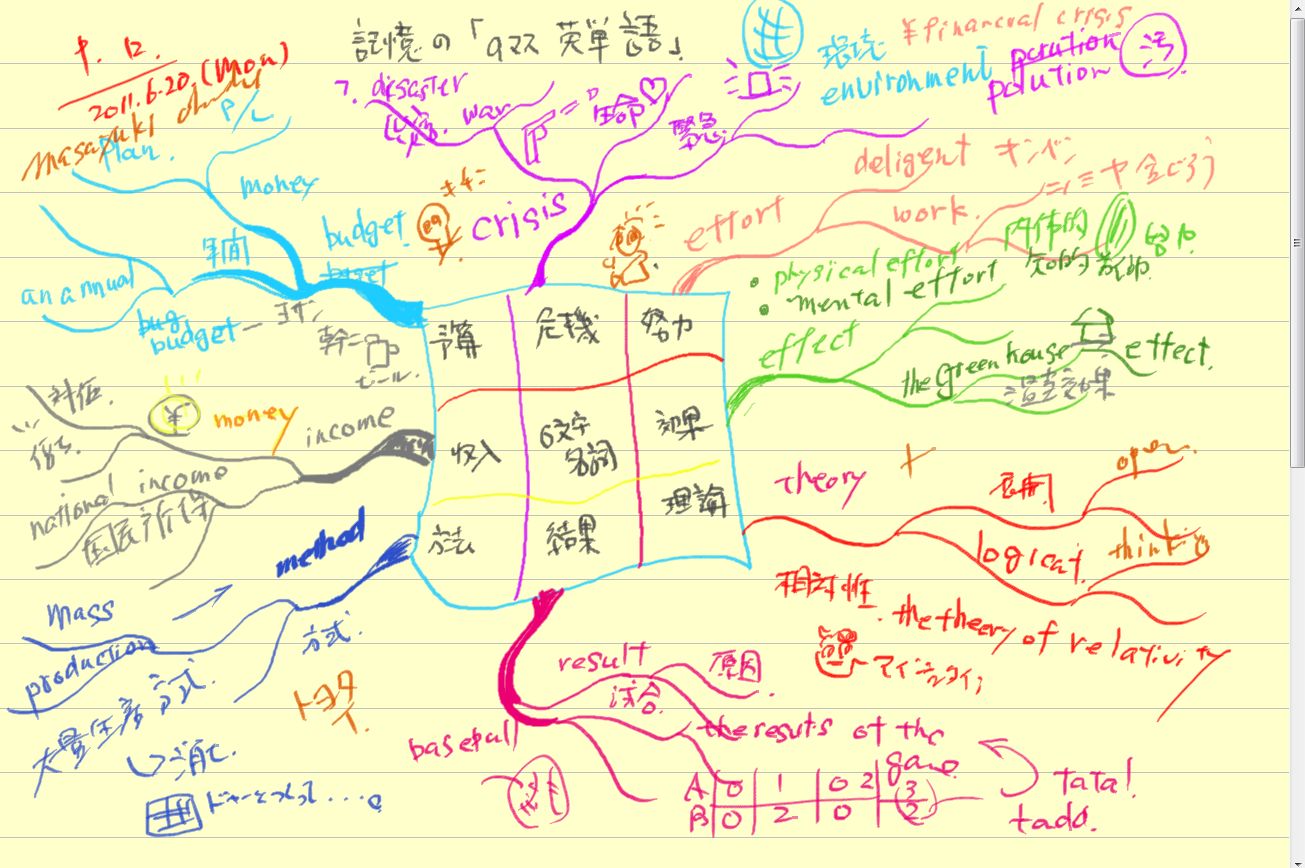 記憶の「9マス 英単語」
P. 12.
2011.6.20.(Mon)
Masayuki
P/L
plan.
money
budget
年間
an annual
budget ー ヨサン
幹ニ
ビール.
7. disaster
war
生命
緊急
crisis
環境
environment
¥financural crisis
polution
polution
汚
effort
deligent キンベン
work.
ニノミヤ金じろう
• physical effort 肉体的
• mental effort 知的
effect
the Green house effect.
温室効果
予算
危機
努力
収入
6文字
名詞
効果
方法
結果
理論
money
income
national income
国民所得
method
方式.
mass
production
大量生産方式.
トヨタ
T.
theory
展開
open.
logical.
think
相対性.
the theory of relativity
アインシュタイン
result
原因
試合
baseball
the resuts of the
game
A 0 1 0 2 3
B 0 2 0 2
Tatal
tado.